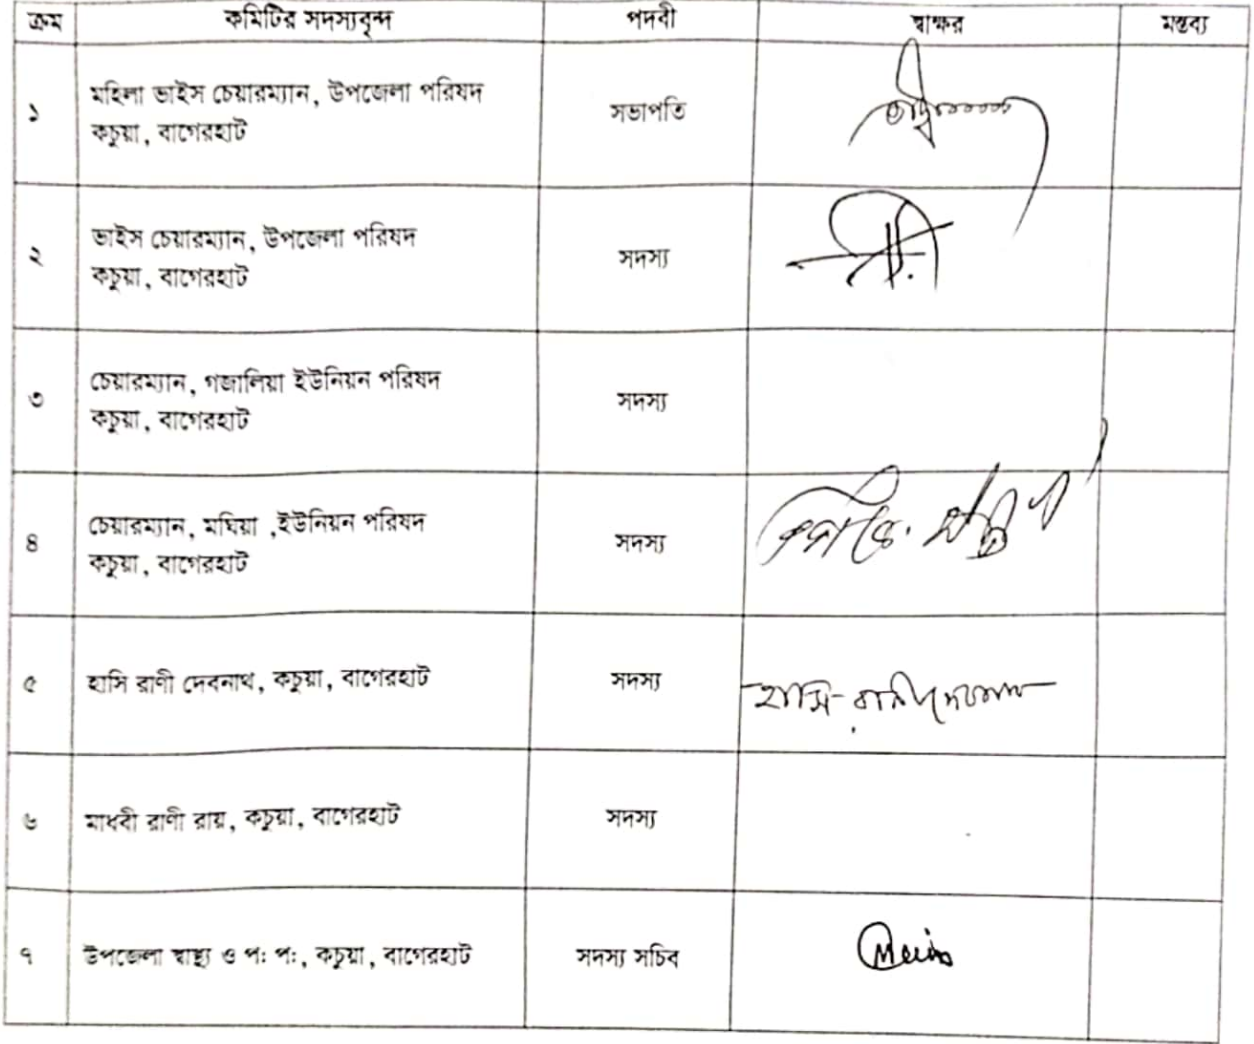 ক্রম কমিটির সদস্যবৃন্দ পদবী স্বাক্ষর মন্তব্য
১ মহিলা ভাইস চেয়ারম্যান, উপজেলা পরিষদ সভাপতি
কচুয়া, বাগেরহাট
২ ভাইস চেয়ারম্যান, উপজেলা পরিষদ সদস্য
কচুয়া, বাগেরহাট
৩ চেয়ারম্যান, গজালিয়া ইউনিয়ন পরিষদ সদস্য
কচুয়া, বাগেরহাট
৪ চেয়ারম্যান, মঘিয়া ,ইউনিয়ন পরিষদ সদস্য
কচুয়া, বাগেরহাট
৫ হাসি রাণী দেবনাথ, কচুয়া, বাগেরহাট সদস্য হাসি রানী দেবনাথ
৬ মাধবী রাণী রায়, কচুয়া, বাগেরহাট সদস্য
৭ উপজেলা স্বাস্থ্য ও প: প:, কচুয়া, বাগেরহাট সদস্য সচিব